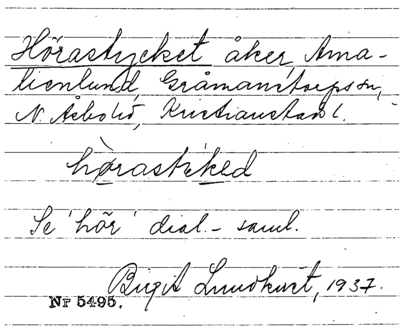 Hörastycket åker, Ama-
lienlund, Gråmanstorps sn,
N. Åsbo hd, Kristianstad l.
hörastiked
Se 'hör' dial.- saml.
Birgit Lundkvist, 1937.
Nr 5495.